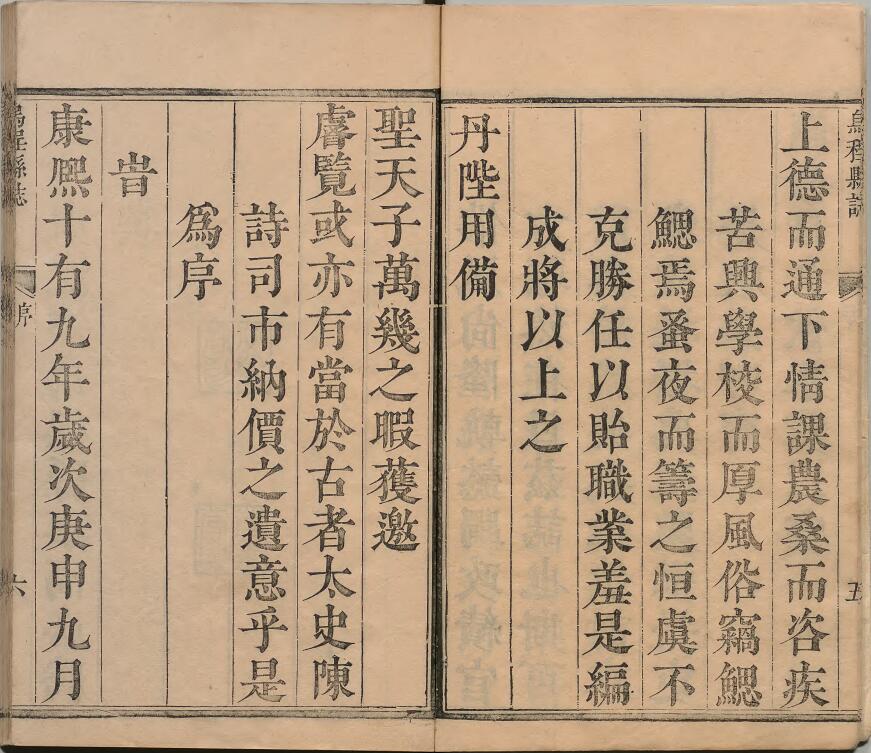 烏程縣誌
五
上德而通下情課農桑而咨疾
苦興學校而厚風俗竊鰓
鰓焉蚤夜而籌之恒虞不
克勝任以貽職業羞是編
成將以上之
丹陛用備
聖天子萬幾之暇蒦邀
睿覽或亦有當於古者太史陳
詩司市納價之遺意乎是
爲序
旹
康熈十有九年歲次庚申九月
烏程縣誌
序
六